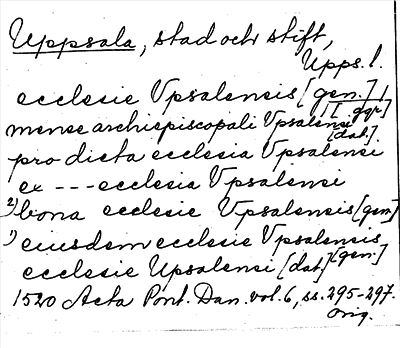 Uppsala, stad och stift,
Upps. l.
ecclesie Vpsalensis [gen.] |
mense archiepiscopali Vpsalensi [2 ggr] [dat.]
pro dicta ecclesia Vpsalensi
ex --- ecclesia Vpsalensi
2) bona ecclesie Vpsalensis [gen]
1) eiusdem ecclesie Vpsalensis [gen.]
ecclesie Upsalensi [dat]
1520 Acta Pont. Dan. vol. 6, ss. 295-297.
Orig.